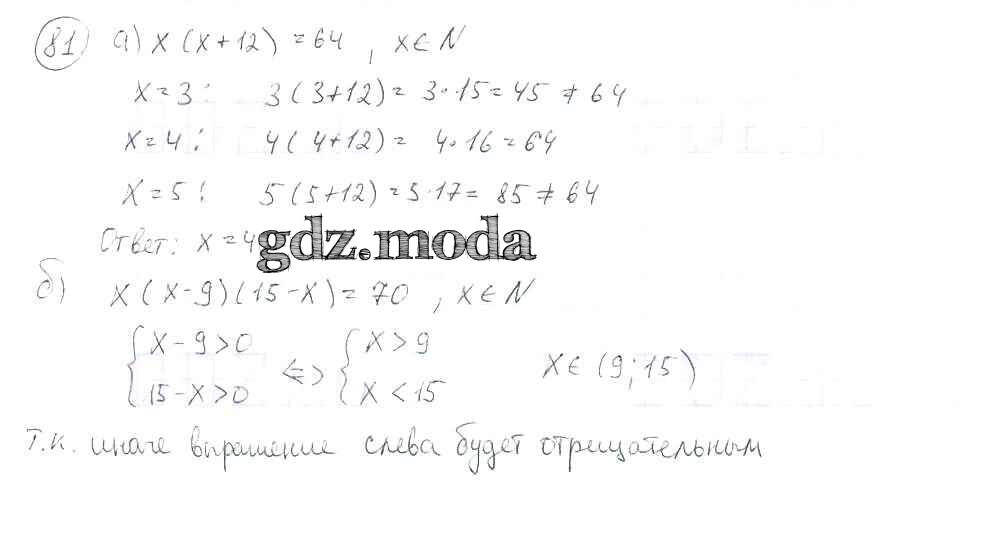 81) а) x (x+12) = 64 , x ∈ N
x = 3 : 3 (3+12) = 3·15 = 45 ≠ 64
x = 4 : 4 ( 4+12) = 4·16 = 64
x = 5 : 5 (5+12) = 5·17 = 85 ≠ 64
Ответ: x = 4
gdz.moda
б) x ( x-9) (15-x) = 70 , x ∈ N
{ x - 9 > 0 <=> { x > 9 x ∈ (9; 15)
{ 15 - x > 0 { x < 15
Т.к. иначе выражение слева будет отрицательным